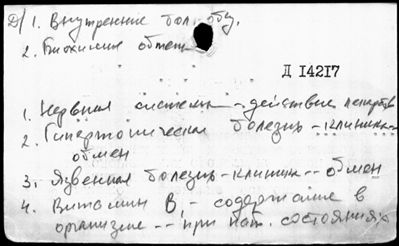 Д/ 1. Внутренние бол. общ.
2. Биохимия обмен
Д 14217
1. Нервная система -- действие лекарств
2. Гипертоническая болезнь -- клиника --
обмен
3. Язвенная болезнь - клиника -- обмен
4. Витамин B1 - содержание в
организме -- при пат. состояниях